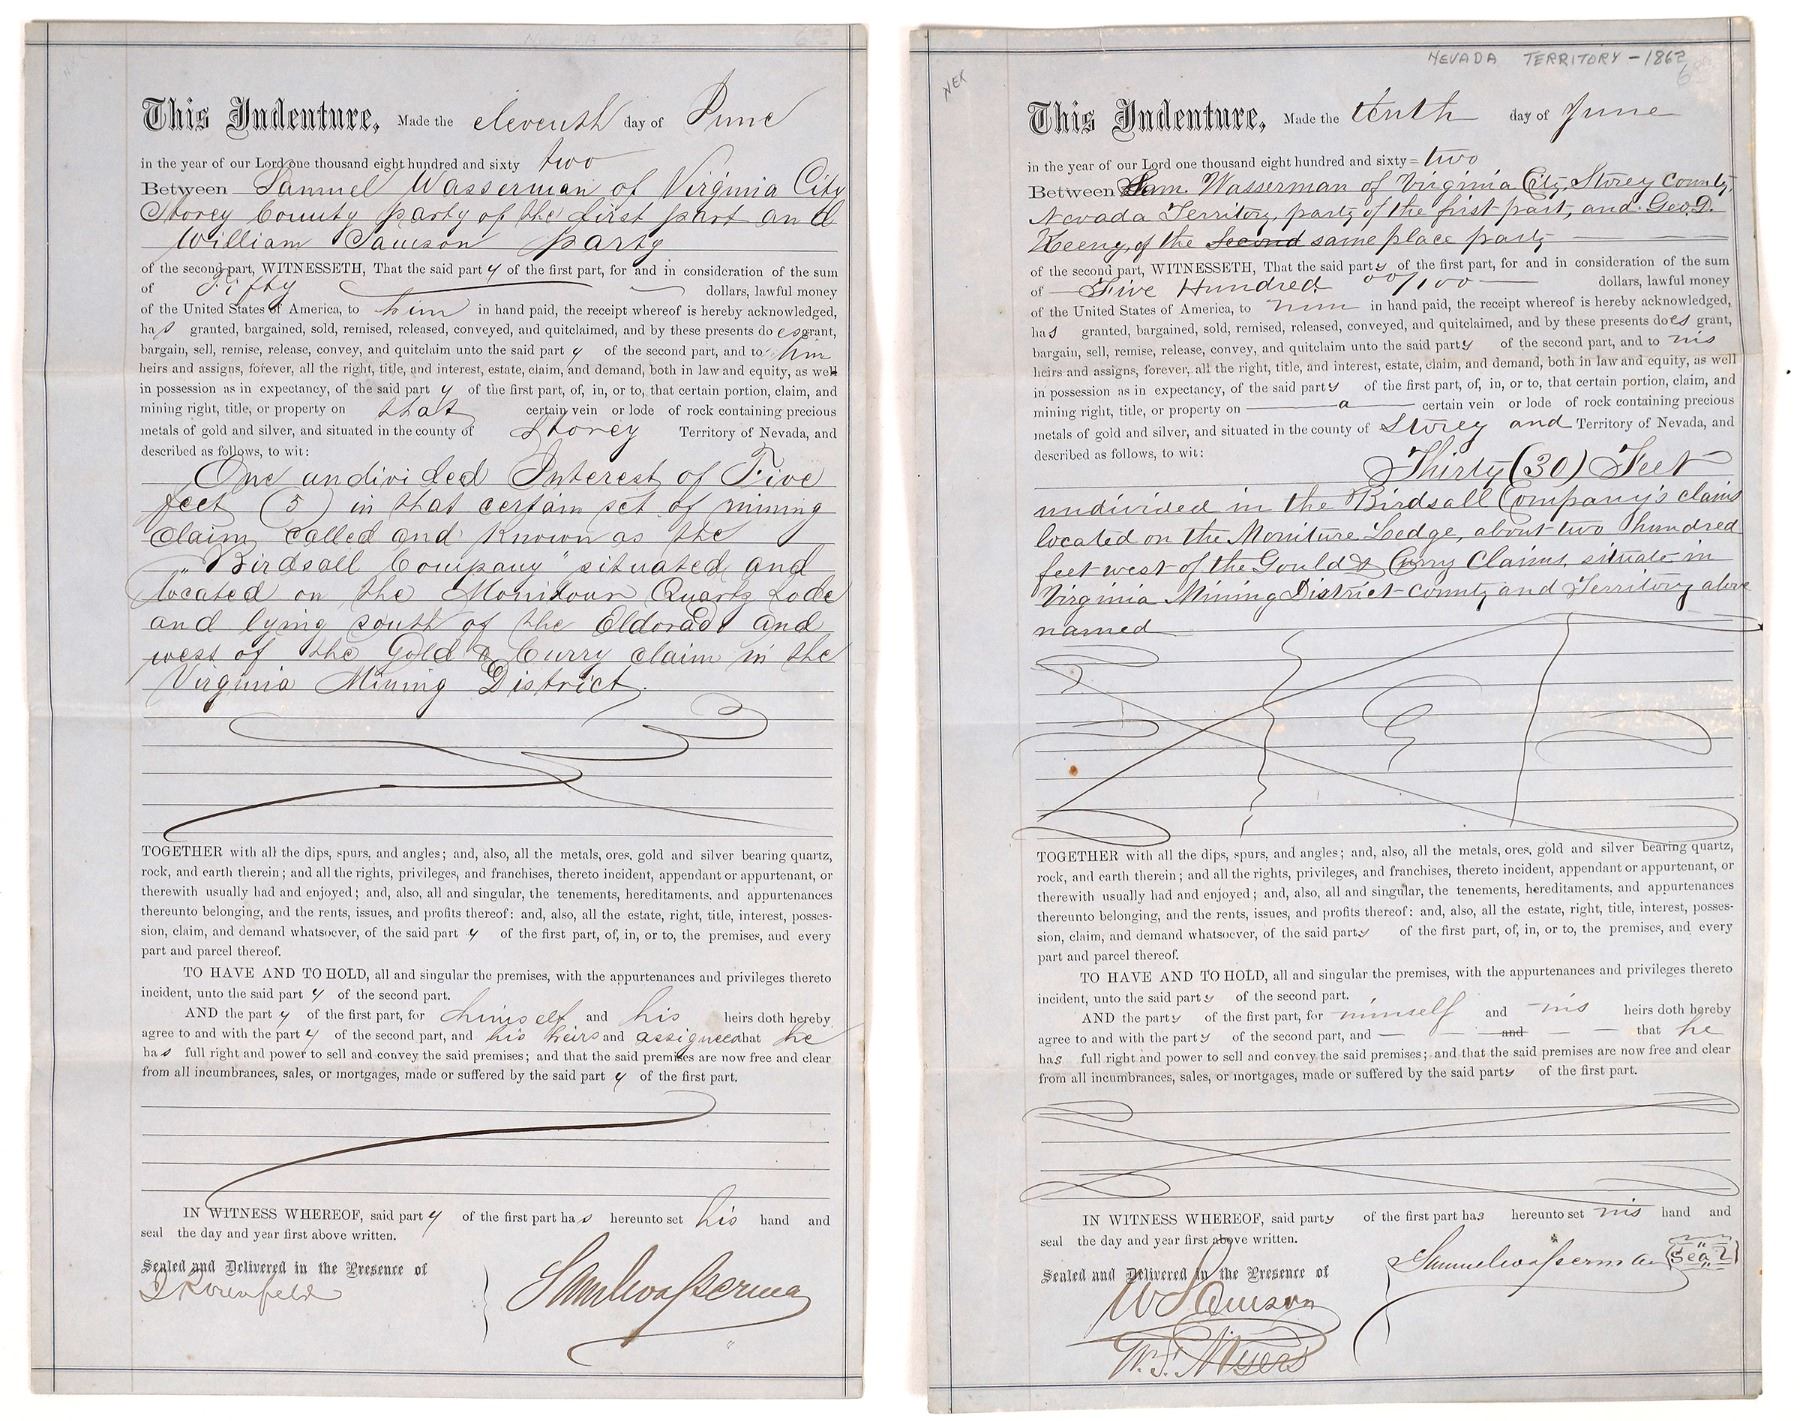 This Indenture, Made the eleventh day of June
in the year of our Lord one thousand eight hundred and sixty two
Between Samuel Wasserman of Virginia City
Storey County party of the first part and
William Samson party
of the second part, WITNESSETH, That the said party of the first part, for and in consideration of the sum
of Fifty dollars, lawful money
of the United States of America, to him in hand paid, the receipt whereof is hereby acknowledged,
has granted, bargained, sold, remised, released, conveyed, and quitclaimed, and by these presents does grant,
bargain, sell, remise, release, convey, and quitclaim unto the said party of the second part, and to him
heirs and assigns, forever, all the right, title, and interest, estate, claim, and demand, both in law and equity, as well
in possession as in expectancy, of the said party of the first part, of, in, or to, that certain portion, claim, and
mining right, title, or property on that certain vein or lode of rock containing precious
metals of gold and silver, and situated in the county of Storey Territory of Nevada, and
described as follows, to wit:
One undivided Interest of Five
feet (5) in that certain set of mining
Claim called and known as the
"Birdsall Company" situated and
located on the Monitour Quartz Lode
and lying south of the Eldorado and
west of the Gold & Curry claim in the
Virginia Mining District.
TOGETHER with all the dips, spurs, and angles; and, also, all the metals, ores, gold and silver bearing quartz,
rock, and earth therein; and all the rights, privileges, and franchises, thereto incident, appendant or appurtenant, or
therewith usually had and enjoyed; and, also, all and singular, the tenements, hereditaments, and appurtenances
thereunto belonging, and the rents, issues, and profits thereof: and, also, all the estate, right, title, interest, posses-
sion, claim, and demand whatsoever, of the said party of the first part, of, in, or to, the premises, and every
part and parcel thereof.
TO HAVE AND TO HOLD, all and singular the premises, with the appurtenances and privileges thereto
incident, unto the said party of the second part.
AND the party of the first part, for himself and his heirs doth hereby
agree to and with the party of the second part, and his heirs and assignees that he
has full right and power to sell and convey the said premises; and that the said premises are now free and clear
from all incumbrances, sales, or mortgages, made or suffered by the said party of the first part.
IN WITNESS WHEREOF, said party of the first part has hereunto set his hand and
seal the day and year first above written.
Sealed and Delivered in the Presence of
Samuel Wasserman
NEVADA TERRITORY - 1862
NEX
This Indenture, Made the tenth day of June
in the year of our Lord one thousand eight hundred and sixty = two
Between Sam. Wasserman of Virginia City, Storey County,
Nevada Territory, party of the first part, and Geo. D.
Keeny, of the Second same place party
of the second part, WITNESSETH, That the said party of the first part, for and in consideration of the sum
of Five Hundred 00/100 dollars, lawful money
of the United States of America, to him in hand paid, the receipt whereof is hereby acknowledged,
has granted, bargained, sold, remised, released, conveyed, and quitclaimed, and by these presents does grant,
bargain, sell, remise, release, convey, and quitclaim unto the said party of the second part, and to his
heirs and assigns, forever, all the right, title, and interest, estate, claim, and demand, both in law and equity, as well
in possession as in expectancy, of the said party of the first part, of, in, or to, that certain portion, claim, and
mining right, title, or property on a certain vein or lode of rock containing precious
metals of gold and silver, and situated in the county of Storey and Territory of Nevada, and
described as follows, to wit:
Thirty (30) Feet
undivided in the Birdsall Company's claims
located on the Moniture Ledge, about two hundred
feet west of the Gould & Curry Claims, situate in
Virginia Mining District County and Territory above
named
TOGETHER with all the dips, spurs, and angles; and, also, all the metals, ores, gold and silver bearing quartz,
rock, and earth therein; and all the rights, privileges, and franchises, thereto incident, appendant or appurtenant, or
therewith usually had and enjoyed; and, also, all and singular, the tenements, hereditaments, and appurtenances
thereunto belonging, and the rents, issues, and profits thereof: and, also, all the estate, right, title, interest, posses-
sion, claim, and demand whatsoever, of the said party of the first part, of, in, or to, the premises, and every
part and parcel thereof.
TO HAVE AND TO HOLD, all and singular the premises, with the appurtenances and privileges thereto
incident, unto the said party of the second part.
AND the party of the first part, for himself and his heirs doth hereby
agree to and with the party of the second part, and and that he
has full right and power to sell and convey the said premises; and that the said premises are now free and clear
from all incumbrances, sales, or mortgages, made or suffered by the said party of the first part.
IN WITNESS WHEREOF, said party of the first part has hereunto set his hand and
seal the day and year first above written.
Sealed and Delivered in the Presence of
Samuel Wasserman Seal
W Samson
W. F. Myers